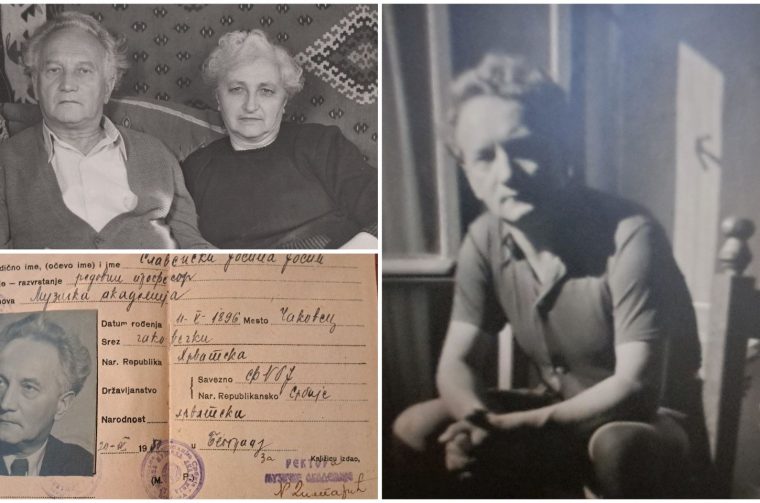 dično ime, (očevo ime) i ime Славенски Јосипа Јосип
e – razvrstanje редовни професор
nova Музичка академија
Datum rođenja 11-V-1896 Mesto Чаковец
Srez чаковечки
Nar. Republika Хрватска
Državljanstvo { Savezno ФНРЈ
Nar. Republikansko Србије
Narodnost хрватска
20-VI 19 u Београд
(M. P.) за Knjižicu izdao,
РЕКТОР
МУЗИЧКЕ АКАДЕМИЈЕ